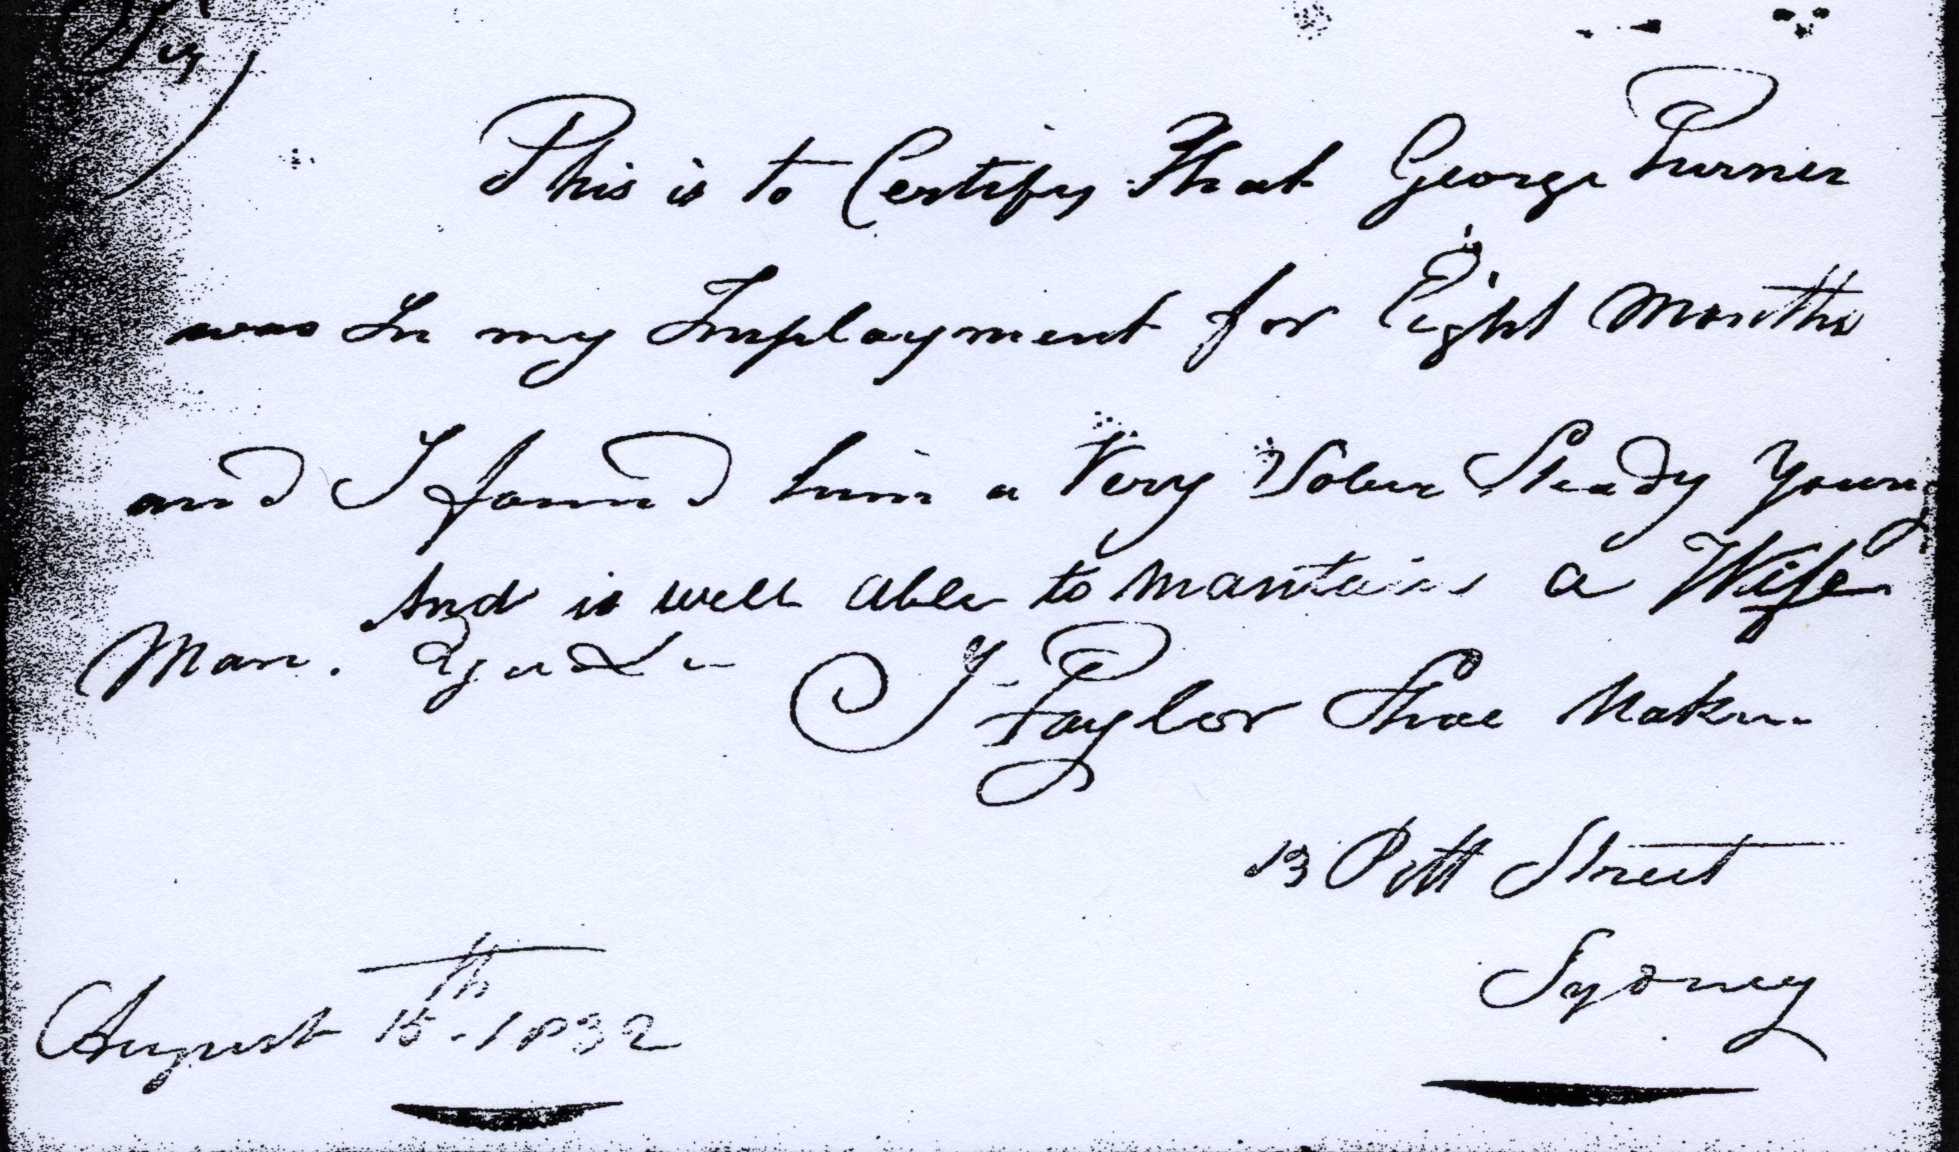 Sir
This is to Certify That George Turner
was In my Imployment for Eight Months
and I found him a Very Sober Steady Young
And is well able to Mantain a Wife
Man.
J Taylor Shoe Maker
13 Pitt Street
Sydney
August 15th 1832